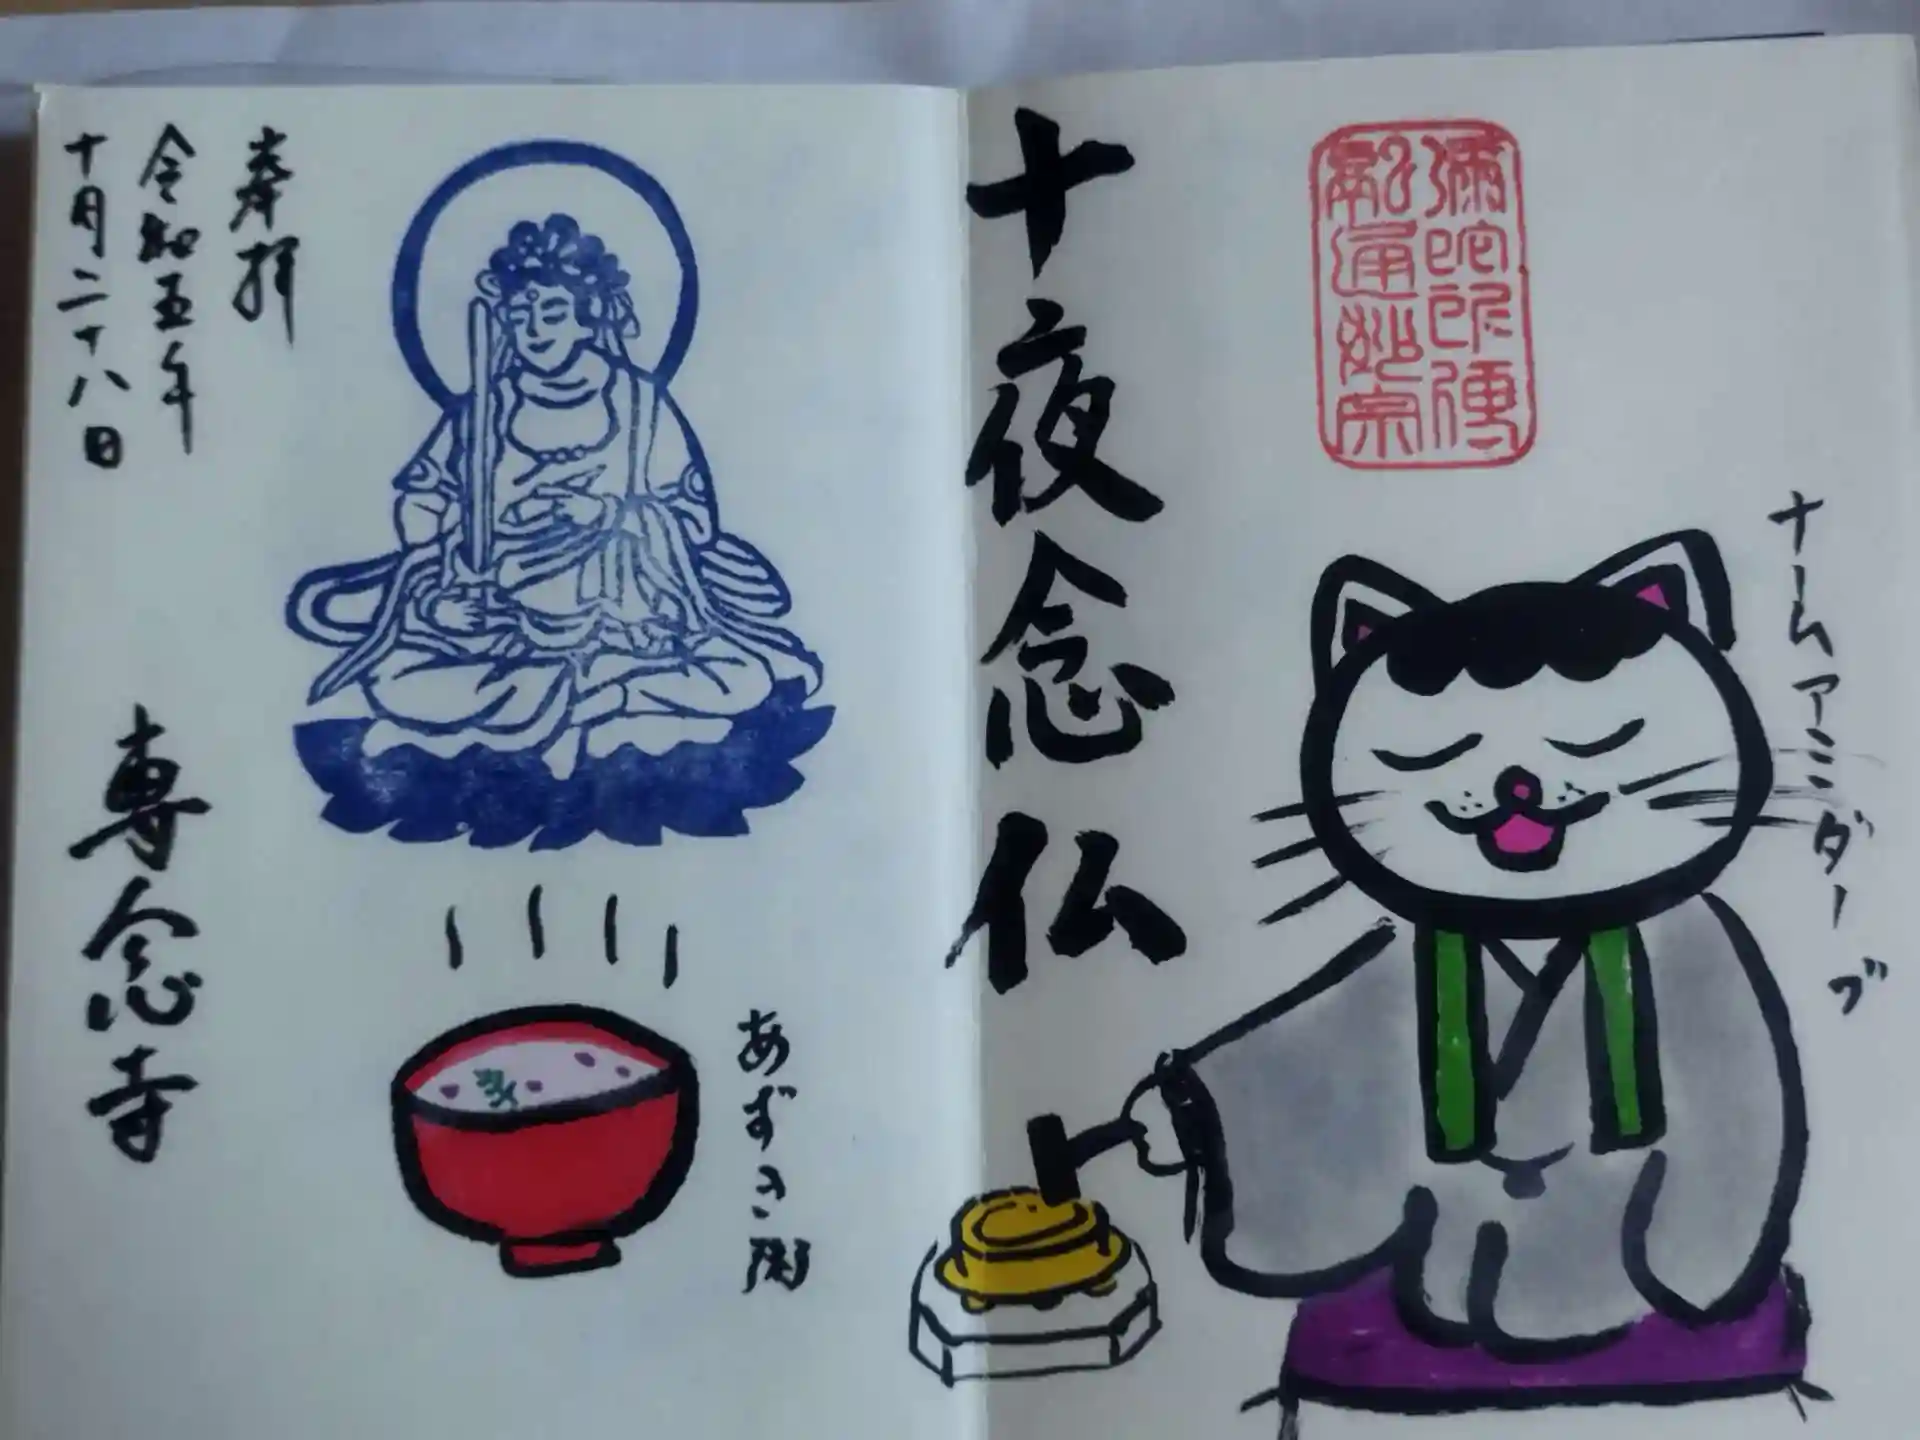 ナームアミダーブ
彌陀所傳
融通妙宗
十夜念仏
あずき粥
奉拝
令和五年
十月二十八日
専念寺